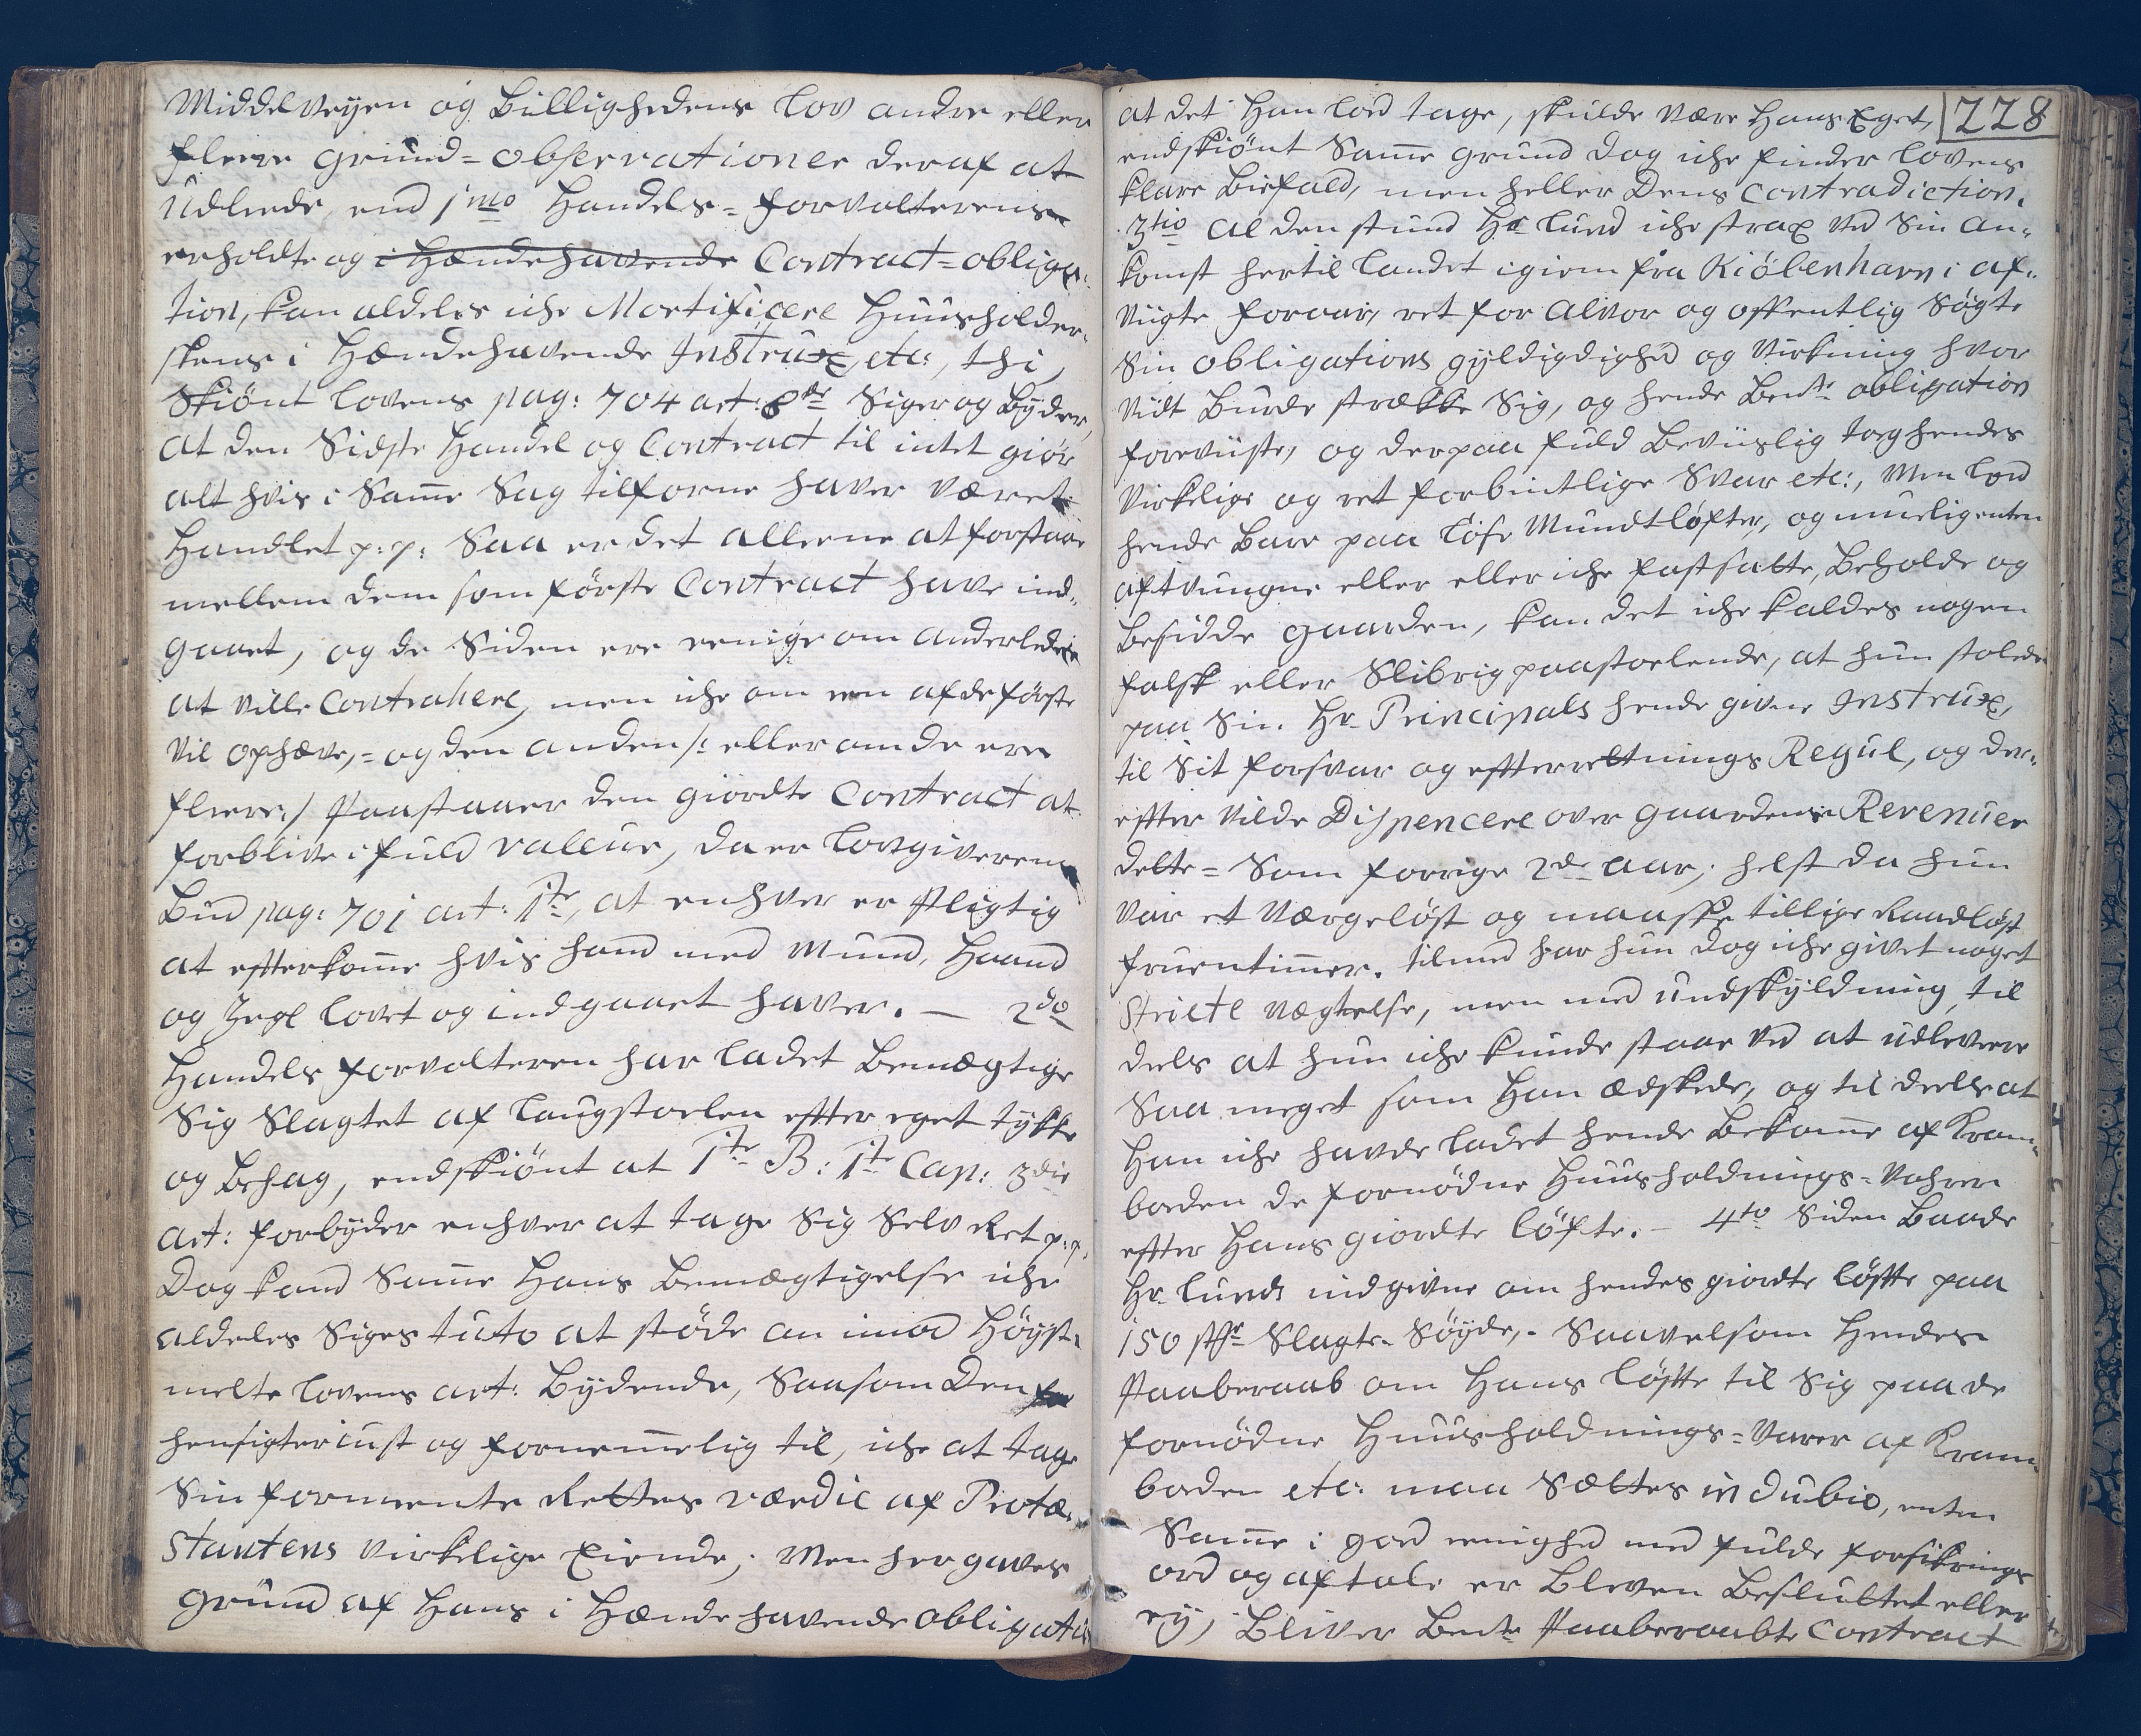 Middelveyen og Billighedens Lov andre eller
fleere Grund=Observationer deraf at
Udleede, end 1mo Handels=Forvalterens
erholdte og i Hændehavende Contract=obliga-
tion, kan aldeles iche Mortificere Huusholder-
skens i Hændehavende Instrux, etc:, thi,
Skiönt Lovens pag: 704 art: 6te Siger og Byder,
at den Sidste Handel og Contract til intet giör
alt hvis i Samme Sag tilforne haver været
Handlet p: p: Saa er det alleene at forstaae
mellem dem som förste Contract have ind-
gaaet, og de Siden ere eenige om anderledes
at ville Contrahere, men iche om een af de förste
vil ophæve,= og den anden /: eller om de ere
fleere:/ Paastaaer den giordte Contract at
forblive i fuld valeur, da er Lovgiverens
Bud pag: 701 art: 1te, at enhver er Pligtig
at efterkomme hvis hand med Mund, Haand
og Segl lovet og indgaaet haver. — 2do
Handels Forvalteren har ladet Bemægtige
Sig Slagtet af Laugstoelen effter eget tykke
og Behag, endskiönt at 1te B: 1te Cap: 3die
Art: forbyder enhver at tage Sig Selv Ret p: p:
Dog kand Samme Hans Bemægtigelse iche
aldeles Siges tuto at støde an imod Höyst-
melte Lovens art: Bydende, Saasom Den
hensigter iust og fornemmelig til, iche at tage
Sin formeente Rettes værdie af Protæ-
stantens virkelige Eiende; Men her gaves
Grund af Hans i Hænde havende obligation
228
at det Han lod tage, skulde være Hans Eget,
endskiönt Samme grund dog iche finder Lovens
klare Biefald, men heller Dens Contradiction.
3tio Al den stund Hr Lund iche strax ved Sin An-
komst hertil Landet igiem fra Kiöbenhavn i af-
vigte Foraar, ret for Alvor og offentlig Søgte
Sin obligations gyldigdighed og Virkning hvor
vidt Burde strække Sig, og hende Bemte obligation
foreviiste, og derpaa fuld Beviislig tog hendes
virkelige og ret forbintlige Svar etc:, Men lod
hende Bare paa löse Mundtløfter, og mueligenten
aftvungne eller eller iche fastsatte, Beholde og
Besidde Gaarden, kan det iche kaldes nogen
falsk eller Slibrig paastaelende, at hun stolede
paa Sin Hr Principals hende givne Instrux,
til Sit forsvar og effterretnings Regul, og der-
effter vilde Dispencere over Gaardens Revenüer
dette= Som forrige 2de Aar; helst da hun
var et værgelöst og maaske tillige Raadløst
fruentimmer. tilmed har hun dog iche givet noget
Stricte Nægtelse, men med undskyldning, til
deels at hun iche kunde staae ved at udlevere
Saa meget som Han ædskede, og til deels at
Han iche havde ladet hende Bekomme af Kram-
boden de fornödne Huusholdnings=Vahrer
effter Hans giordte löfte. — 4to Siden Baade
Hr Lunds indgivne om hendes giordte löffte paa
150 stkr Slagte Søyder,- Saavelsom Hendes
Paaberaab om Hans löffte til Sig paa de
fornödne Huusholdnings=Varer af Kram-
boden etc: maa Sættes in dubio, enten
Samme i god eenighed med fulde forsikrings
ord og aftale er Bleven Besluttet eller
ey, Bliver Bemte Paaberaabte Contract